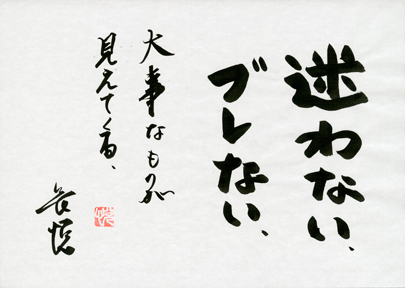 迷わない、
ブレない、
大事なものが
見えてくる、